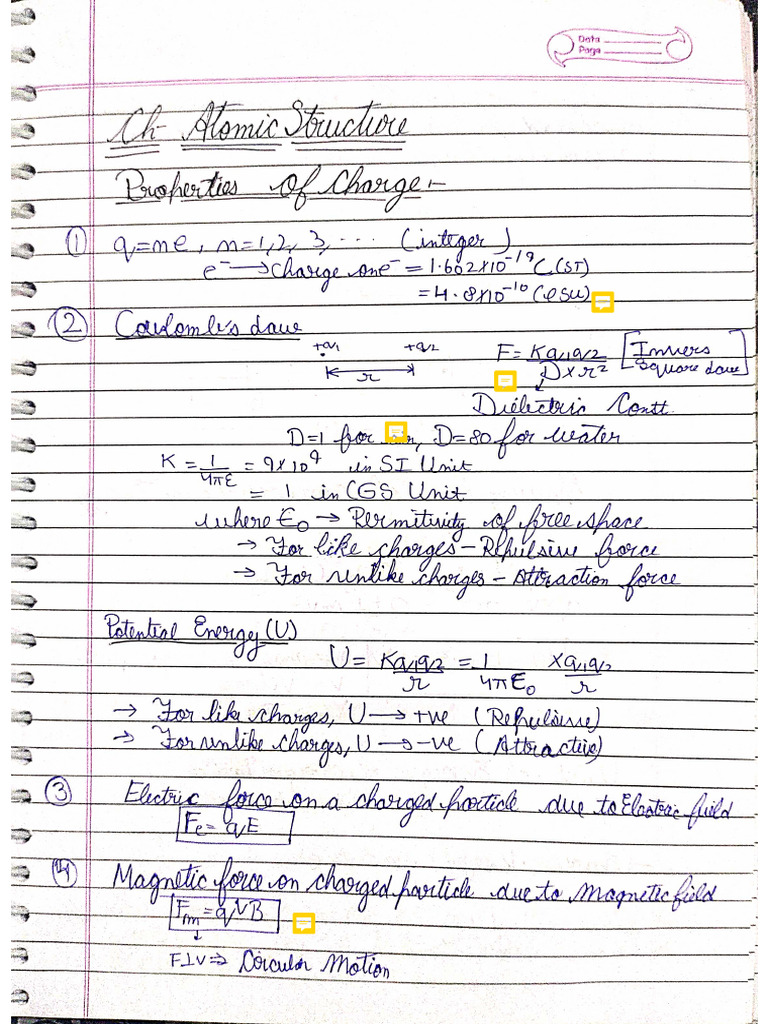 Data
Page
Ch- Atomic Structure
Properties of Charge:-
① q=ne, n=1,2,3,... (integer)
e⁻ → charge on e⁻ = 1.602×10⁻¹⁹ C (SI)
= 4.8×10⁻¹⁰ (esu)
② Coulomb's law
+q₁ +q₂ F = Kq₁q₂ / D×r² [Invers Square law]
r
Dielectric Contt.
D=1 for D=80 for water
K = 1/4πε = 9×10⁹ in SI Unit
= 1 in CGS Unit
where ε₀ → Permitivity of free space
→ For like charges – Repulsive force
→ For unlike charges – Attraction force
Potential Energy (U)
U = Kq₁q₂/r = 1/4πε₀ × q₁q₂/r
→ For like charges, U → +ve (Repulsive)
→ For unlike charges, U → -ve (Attractive)
③ Electric force on a charged particle due to Electric field
Fe = qE
④ Magnetic force on charged particle due to Magnetic field
Fm = qVB
F⊥V ⇒ Circular Motion